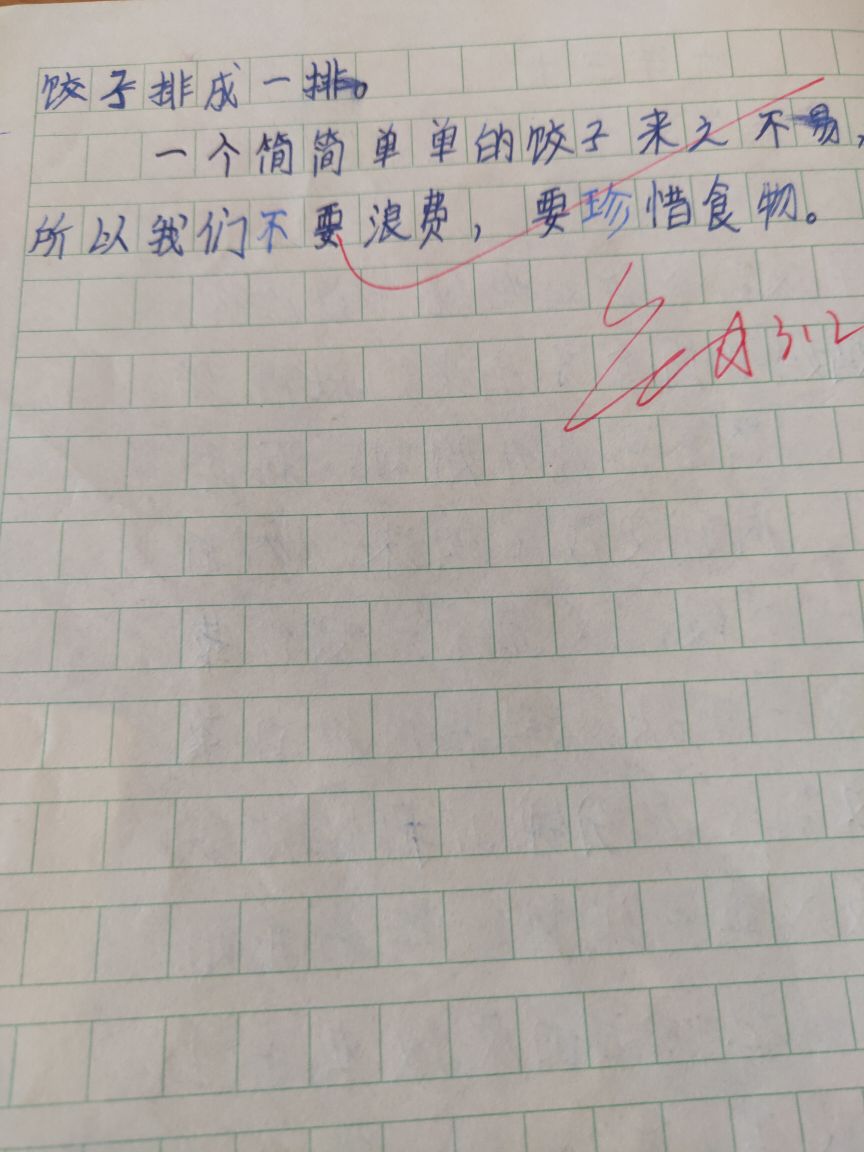 饺子排成一排。
一个简简单单的饺子来之不易,
所以我们不要浪费，要珍惜食物。
3.2